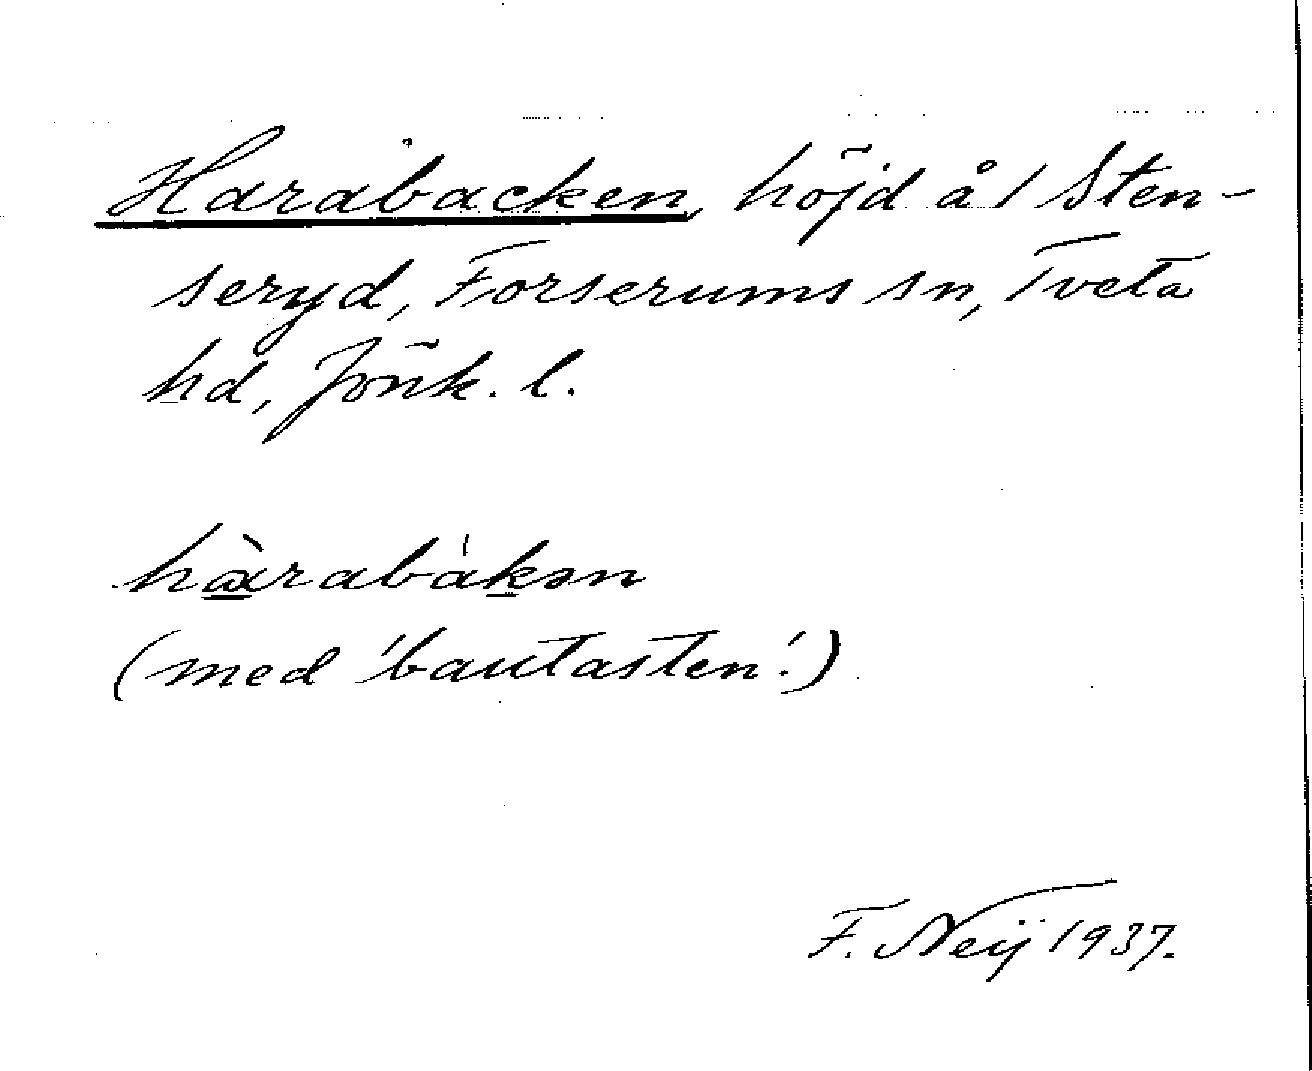 Harabacken, höjd å 1 Sten-
seryd, Forserums sn, Tveta
hd, Jönk. l.
hàrabákən
(med 'bautasten'.)
F. Neij 1937.